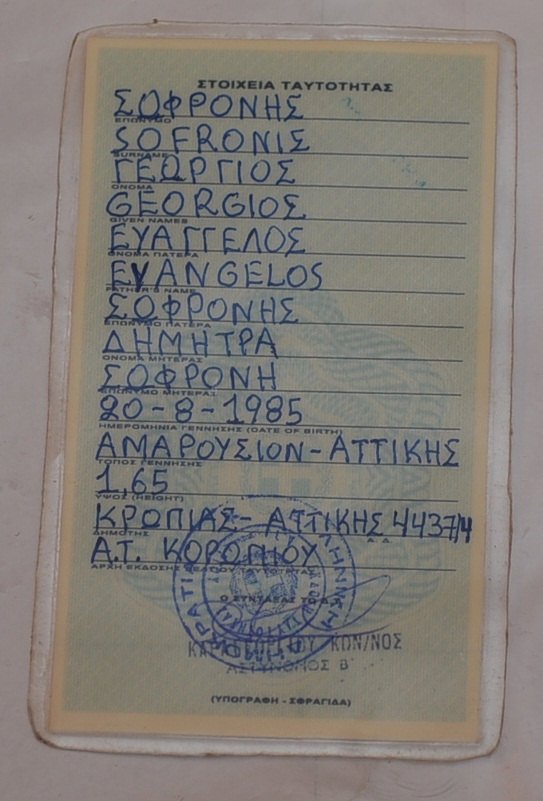 ΣΤΟΙΧΕΙΑ ΤΑΥΤΟΤΗΤΑΣ
ΣΩΦΡΟΝΗΣ
ΕΠΩΝΥΜΟ
SOFRONIS
SURNAME
ΓΕΩΡΓΙΟΣ
ΟΝΟΜΑ
GEORGIOS
GIVEN NAMES
ΕΥΑΓΓΕΛΟΣ
ΟΝΟΜΑ ΠΑΤΕΡΑ
EVANGELOS
FATHER'S NAME
ΣΩΦΡΟΝΗΣ
ΕΠΩΝΥΜΟ ΠΑΤΕΡΑ
ΔΗΜΗΤΡΑ
ΟΝΟΜΑ ΜΗΤΕΡΑΣ
ΣΩΦΡΟΝΗ
ΕΠΩΝΥΜΟ ΜΗΤΕΡΑΣ
20-8-1985
ΗΜΕΡΟΜΗΝΙΑ ΓΕΝΝΗΣΗΣ (DATE OF BIRTH)
ΑΜΑΡΟΥΣΙΟΝ-ΑΤΤΙΚΗΣ
ΤΟΠΟΣ ΓΕΝΝΗΣΗΣ
1,65
ΥΨΟΣ (HEIGHT)
ΚΡΩΠΙΑΣ-ΑΤΤΙΚΗΣ 4437/4
ΔΗΜΟΤΗΣ Α.Δ.
Α.Τ. ΚΟΡΩΠΙΟΥ
ΑΡΧΗ ΕΚΔΟΣΗΣ ΔΕΛΤΙΟΥ ΤΑΥΤΟΤΗΤΑΣ
Ο ΣΥΝΤΑΞΑΣ ΤΟ Δ.Τ.
ΚΩΝ/ΝΟΣ
ΑΣΤΥΝΟΜΟΣ Β΄
(ΥΠΟΓΡΑΦΗ - ΣΦΡΑΓΙΔΑ)